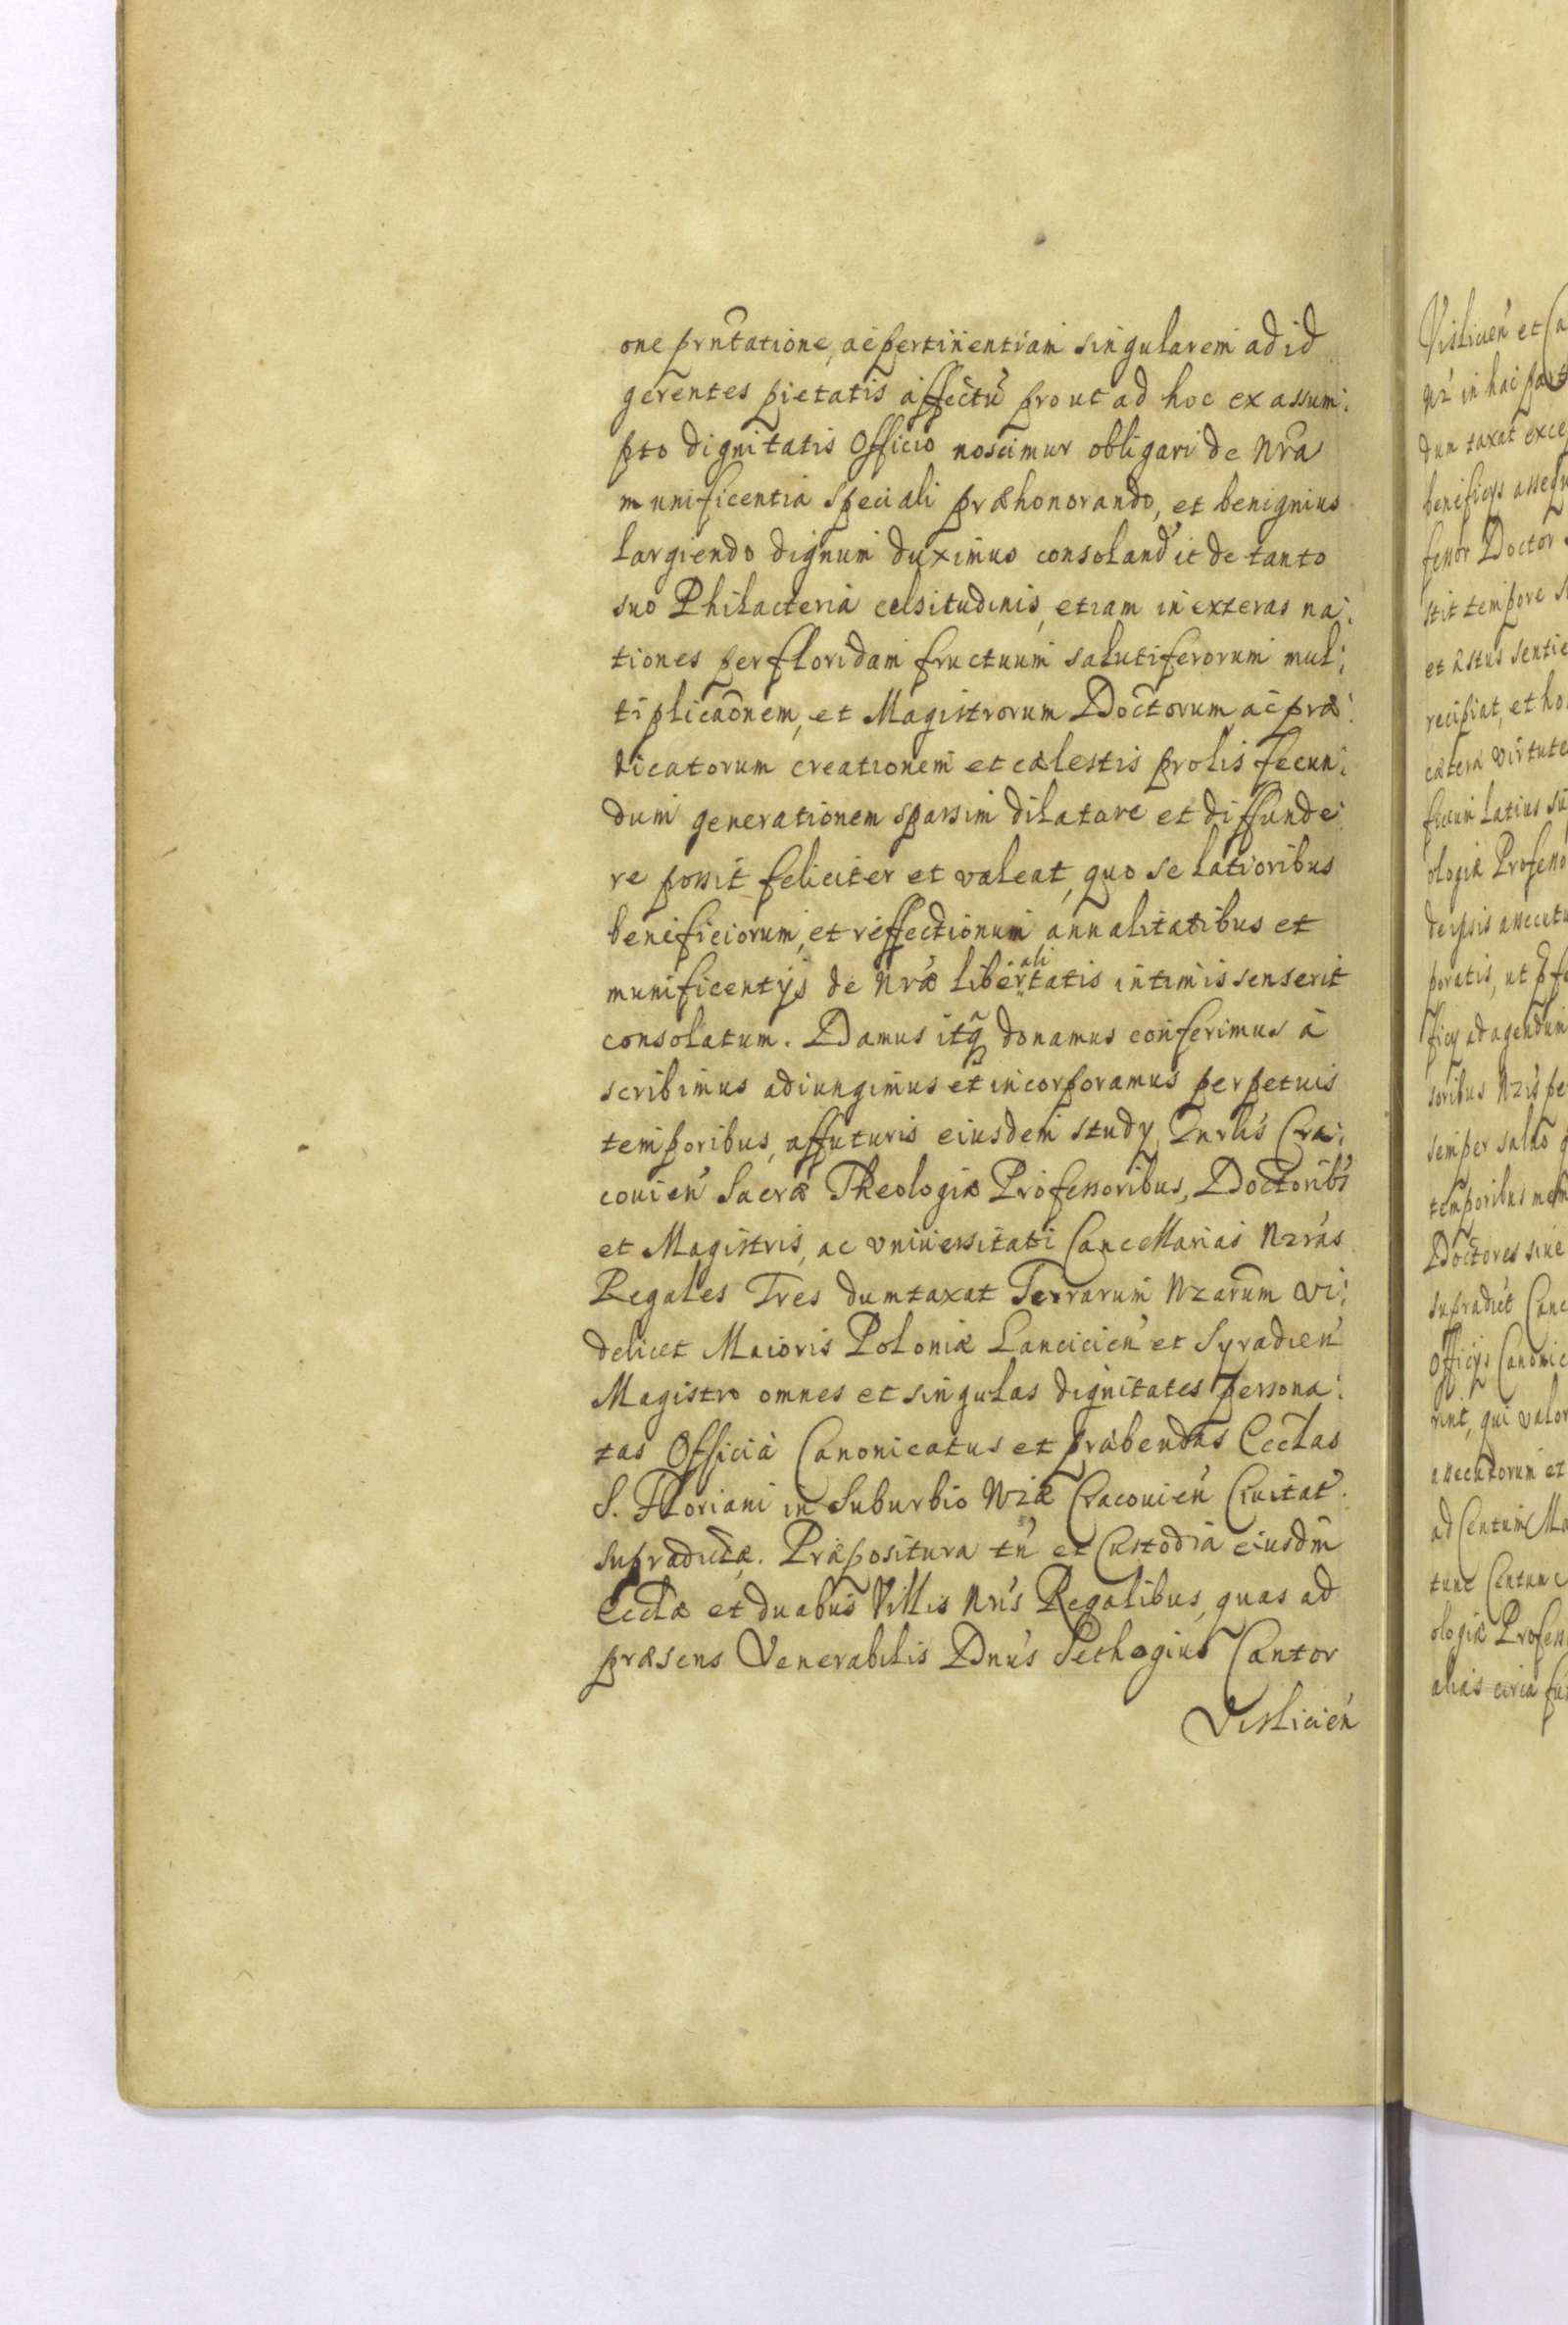 one prñtatione, ac pertinentiam singularem ad id
gerentes pietatis affectũ prout ad hoc ex assum:
pto dignitatis Officio noscimur obligari de Nrã
munificentia speciali præhonorando, et benignius
largiendo dignum duximus consoland' it de tanto
suo Philacteria celsitudinis, etiam in exteras na:
tiones per floridam fructuum salutiferorum mul:
tiplicãonem, et Magistrorum Doctorum ac præ:
dicatorum creationem et cælestis prolis fecun:
dum generationem sparsim dilatare et diffunde:
re possit feliciter et valeat, quo se latioribus
beneficiorum, et reffectionum annalitatibus et
munificentijs de Nræ libertatis ali intimis senserit
consolatum. Damus itq̃ donamus conferimus a
scribimus adiungimus et incorporamus perpetuis
temporibus, affuturis eiusdem study Gnrlis Cra:
couien' Sacræ Theologiæ Professoribus, Doctorib's
et Magistris, ac vniuersitati Cancellarias Nrãs
Regales Tres dumtaxat Terrarum Nrarũm vi:
delicet Maioris Poloniæ Lancicien' et Syradien'
Magistro omnes et singulas dignitates persona:
tas Officia Canonicatus et præbendas Ecclãs
S. Floriani in Suburbio Nræ Cracouien' Ciuitat'
supradictæ. Præpositura tn' et Custodia eiusdm̃
Ecclæ et duabus Villis Nris Regalibus, quas ad
præsens Venerabilis Dnus Pethogius Cantor
Vislicien'
Vislicien' et Ca
Nr' in hac part
dum taxat exce
beneficijs assequ
fessor Doctor
stit tempore
et astus sentie
recipiat, et ho
cætera virtute
ficum latius su
ologiæ Professo
de ipsis assecut
poratis, ut
ficy ad agendum
soribus Nris pe
semper saluo
temporibus mem
Doctores siue
supradict' Canc
Officijs Canonic
rint, qui valor
assecutorum et
ad Centum Ma
tunc Centum
ologiæ Profess
alias circa fu